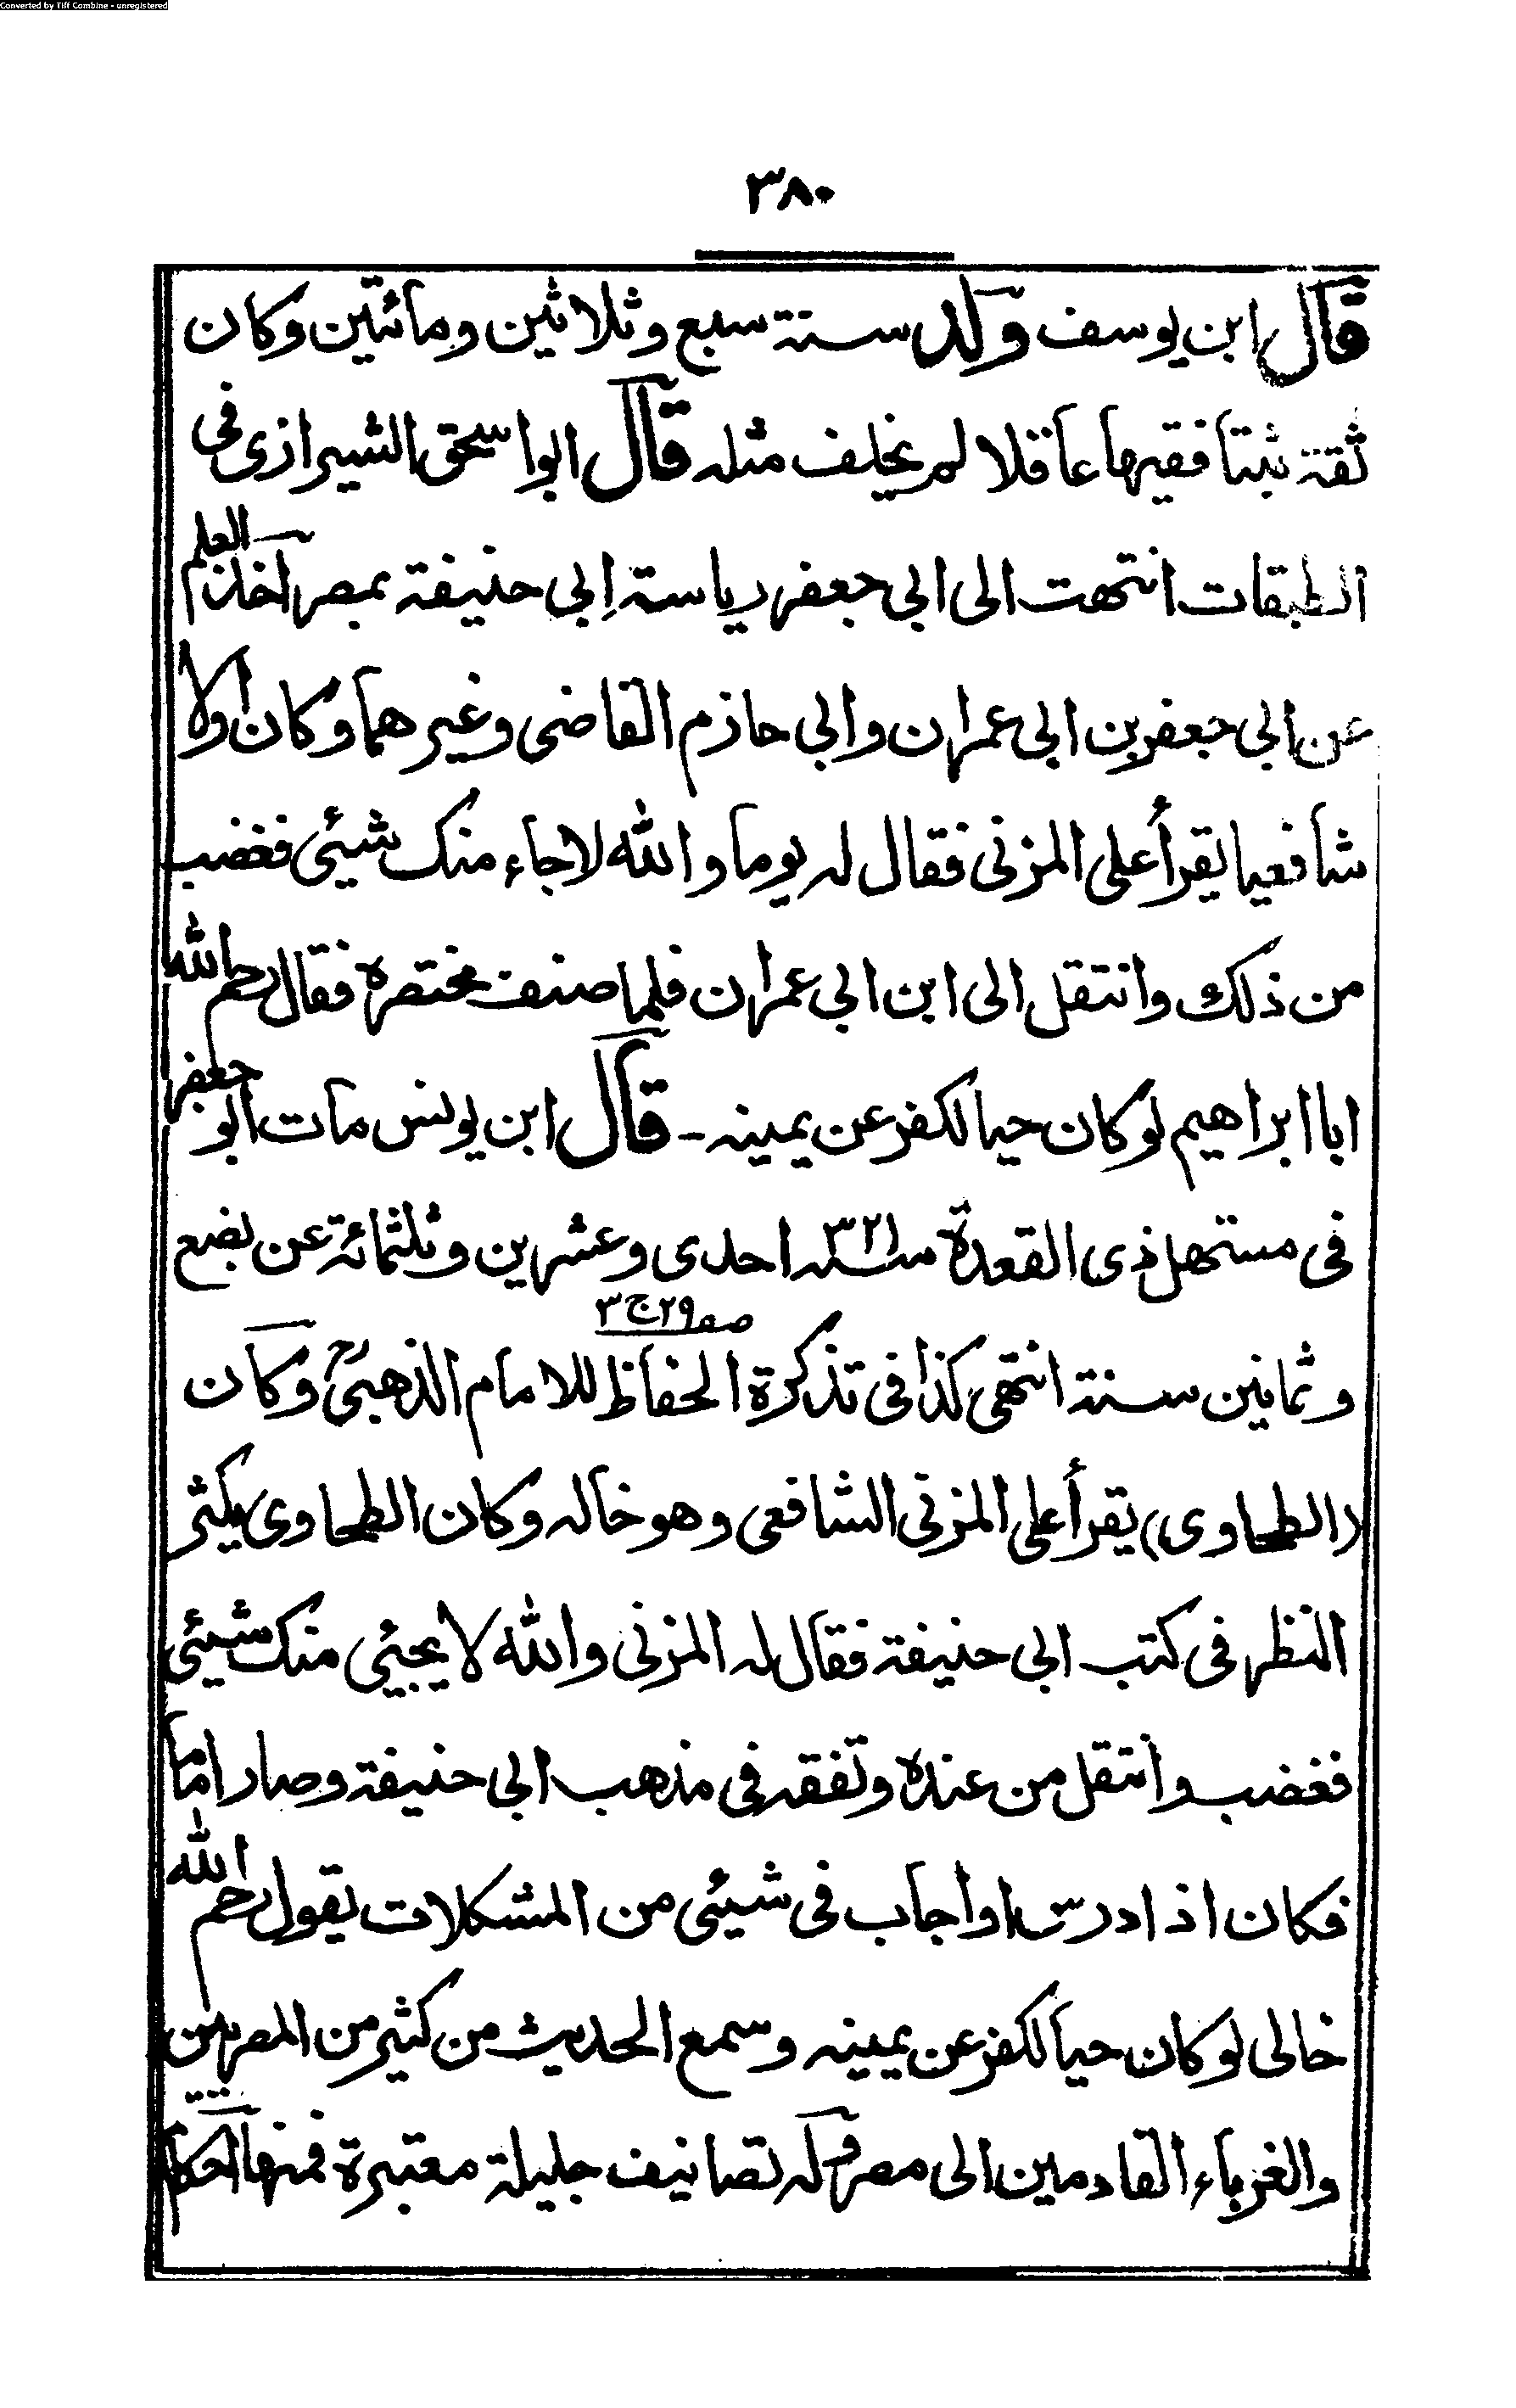 Converted by Tiff Combine - unregistered
٣٨٠
قال ابن يوسف ولد سنة سبع وثلاثين ومائتين وكان
ثقة ثبتا فقيها عاقلا لم يخلف مثله قال ابو اسحق الشيرازى فى
الطبقات انتهت الى ابى جعفر رياسة ابى حنيفة بمصر اخذ العلم
عن ابى جعفر بن ابى عمران وابى حازم القاضى وغيرهما وكان اولا
شافعيا يقرأ على المزنى فقال له يوما والله لا جاء منك شيئى فغضب
من ذلك وانتقل الى ابن ابى عمران فلما صنف مختصره فقال رحم الله
ابا ابراهيم لو كان حيا لكفر عن يمينه - قال ابن يونس مات ابو جعفر
فى مستهل ذى القعدة سنة ٣٢١ احدى وعشرين وثلثمائة عن بضع
وثمانين سنة انتهى كذا فى تذكرة الحفاظ للامام الذهبىؒ صـ ٢٩ ج ٣ وكان
(الطحاوى) يقرأ على المزنى الشافعى وهو خاله وكان الطحاوى يكثر
النظر فى كتب ابى حنيفة فقال له المزنى والله لا يجيئى منك شيئى
فغضب وانتقل من عنده وتفقه فى مذهب ابى حنيفة وصار اماما
فكان اذا درس او اجاب فى شيئى من المشكلات يقول رحم الله
خالى لو كان حيا لكفر عن يمينه وسمع الحديث من كثير من المصريين
والغرباء القادمين الى مصر وله تصانيف جليلة معتبرة فمنها احكام